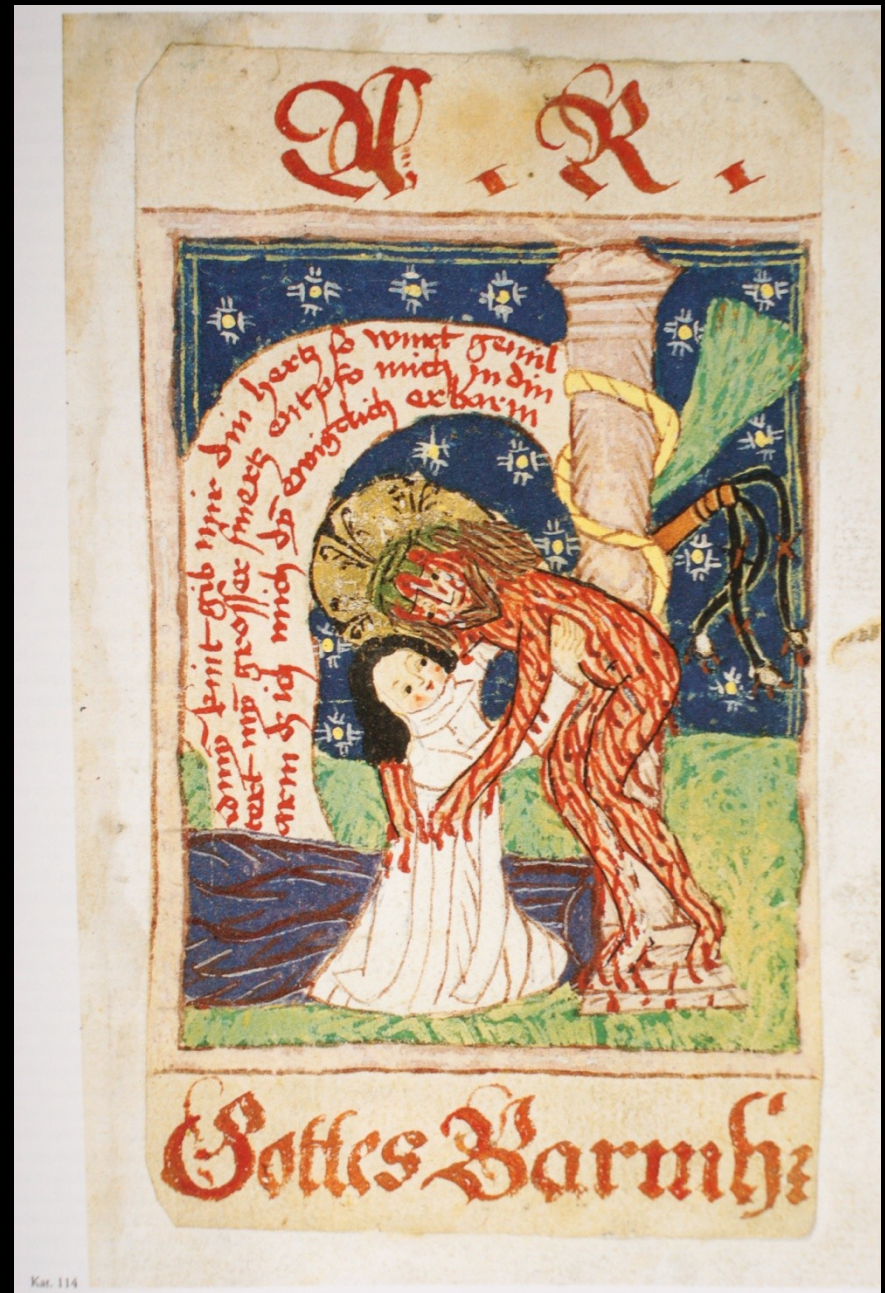 A . R .
kint gib mir din hertz so wirt gemil
tert my grosser smertz mich In din
arm dz ich mich ewigclich erbarm
Gottes Barmhz
Kat. 114